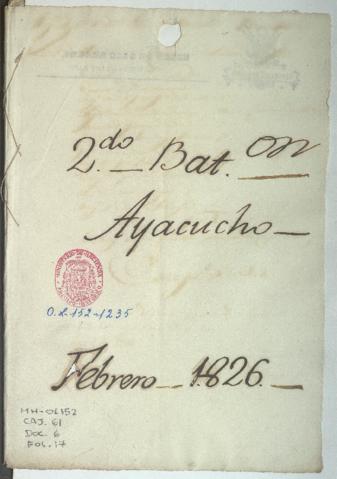 2.do _ Bat.on
Ayacucho _
O.L.152-1235
Febrero _ 1826. _
MH-OL152
CAJ. 61
DOC. 6
FOL. 17